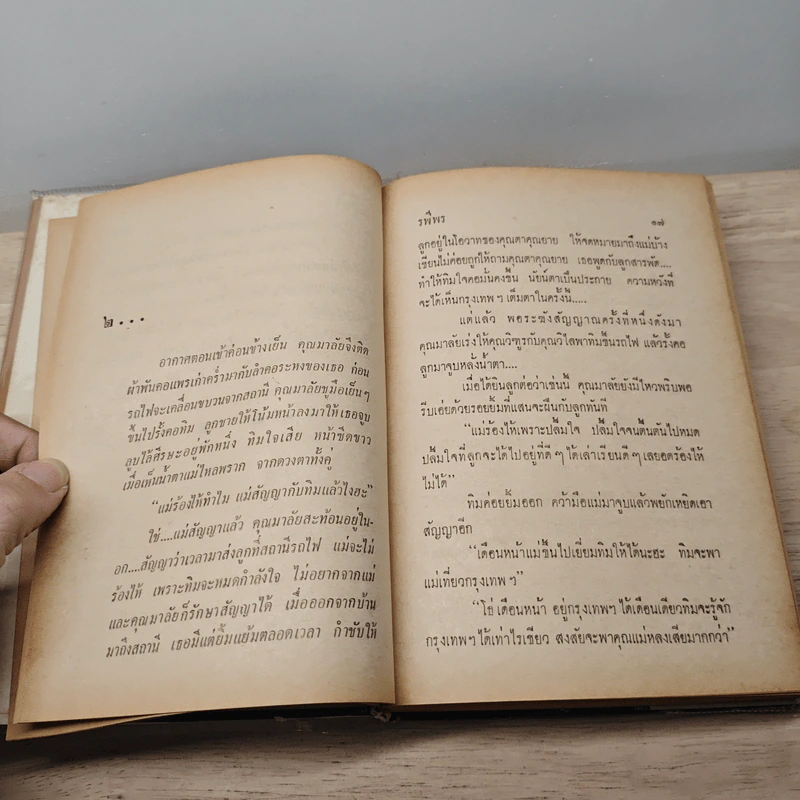 ๒...
อากาศตอนเช้าค่อนข้างเย็น คุณมาลัยจึงติด
ผ้าพันคอแพรเก่าคร่ำมากับลำคอระหงของเธอ ก่อน
รถไฟจะเคลื่อนขบวนจากสถานี คุณมาลัยชูมือเย็นๆ
ขึ้นไปรั้งคอทิม ลูกชายให้โน้มหน้าลงมาให้เธอจูบ
ลูบไล้ศีรษะอยู่พักหนึ่ง ทิมใจเสีย หน้าซีดขาว
เมื่อเห็นน้ำตาแม่ไหลพราก จากดวงตาทั้งคู่
"แม่ร้องไห้ทำไม แม่สัญญากับทิมแล้วไงฮะ"
ใช่....แม่สัญญาแล้ว คุณมาลัยสะท้อนอยู่ใน-
อก....สัญญาว่าเวลามาส่งลูกที่สถานีรถไฟ แม่จะไม่
ร้องไห้ เพราะทิมจะหมดกำลังใจ ไม่อยากจากแม่
และคุณมาลัยก็รักษาสัญญาได้ เมื่อออกจากบ้าน
มาถึงสถานี เธอมีแต่ยิ้มแย้มตลอดเวลา กำชับให้
รพีพร ๑๗
ลูกอยู่ในโอวาทของคุณตาคุณยาย ให้จดหมายมาถึงแม่บ้าง
เขียนไม่ค่อยถูกให้ถามคุณตาคุณยาย เธอพูดกับลูกสารพัด....
ทำให้ทิมใจคอมั่นคงขึ้น นัยน์ตาเป็นประกาย ความหวังที่
จะได้เห็นกรุงเทพ ฯ เต็มตาในครั้งนี้.....
แต่แล้ว พอระฆังสัญญาณครั้งที่หนึ่งดังมา
คุณมาลัยเร่งให้คุณวิฑูรกับคุณวิไลพาทิมขึ้นรถไฟ แล้วรั้งคอ
ลูกมาจูบหลั่งน้ำตา....
เมื่อได้ยินลูกต่อว่าเช่นนี้ คุณมาลัยยังมีไหวพริบพอ
รีบเอ่ยด้วยรอยยิ้มที่แสนจะฝืนกับลูกทันที
"แม่ร้องไห้เพราะปลื้มใจ ปลื้มใจจนตื้นตันไปหมด
ปลื้มใจที่ลูกจะได้ไปอยู่ที่ดี ๆ ได้เล่าเรียนดี ๆ เลยอดร้องไห้
ไม่ได้"
ทิมค่อยยิ้มออก คว้ามือแม่มาจูบแล้วพยักเหยิดเอา
สัญญาอีก
"เดือนหน้าแม่ขึ้นไปเยี่ยมทิมให้ได้นะฮะ ทิมจะพา
แม่เที่ยวกรุงเทพ ฯ"
"โธ่ เดือนหน้า อยู่กรุงเทพฯ ได้เดือนเดียวทิมจะรู้จัก
กรุงเทพฯ ได้เท่าไรเชียว สงสัยจะพาคุณแม่หลงเสียมากกว่า"